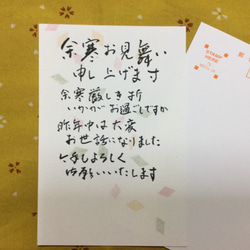 余寒お見舞い
申し上げます
余寒厳しき折
いかがお過ごしですか
昨年中は大変
お世話になりました
今年もよろしく
お願いいたします